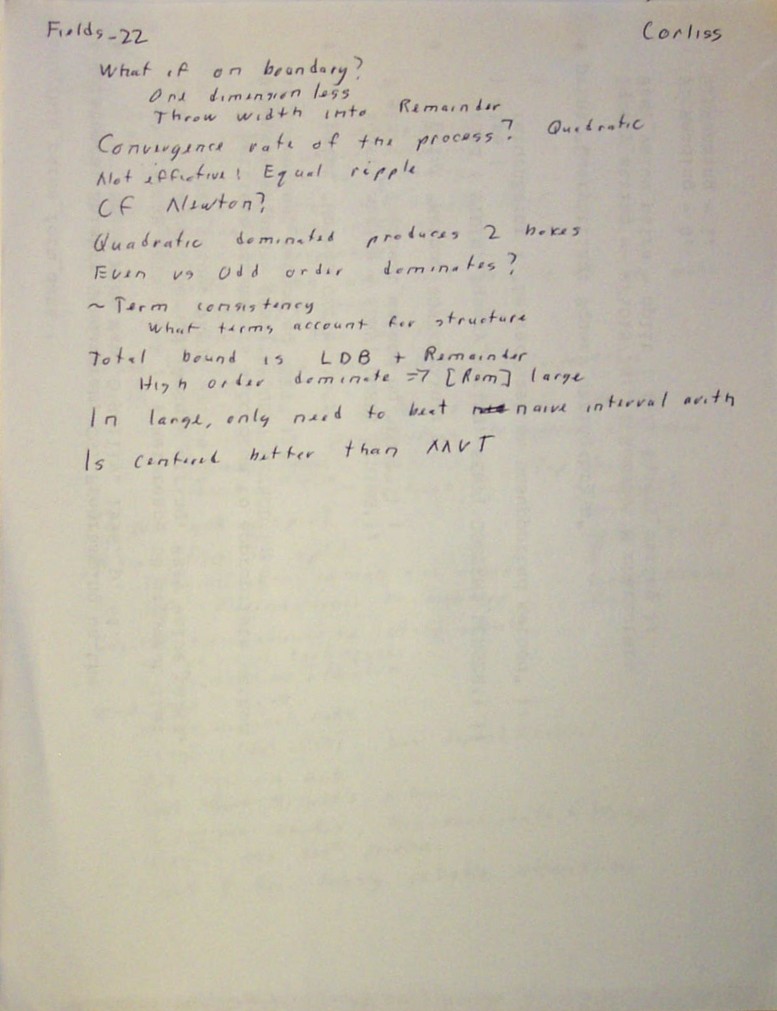 Fields-22 Corliss
What if on boundary?
One dimension less
Throw width into Remainder
Convergence rate of the process? Quadratic
Not effective! Equal ripple
CF Newton?
Quadratic dominated produces 2 boxes
Even vs Odd order dominates?
~ Term consistency
What terms account for structure
Total bound is LDB + Remainder
High order dominate => [Rem] large
In large, only need to beat naive interval arith
Is centered better than MVT